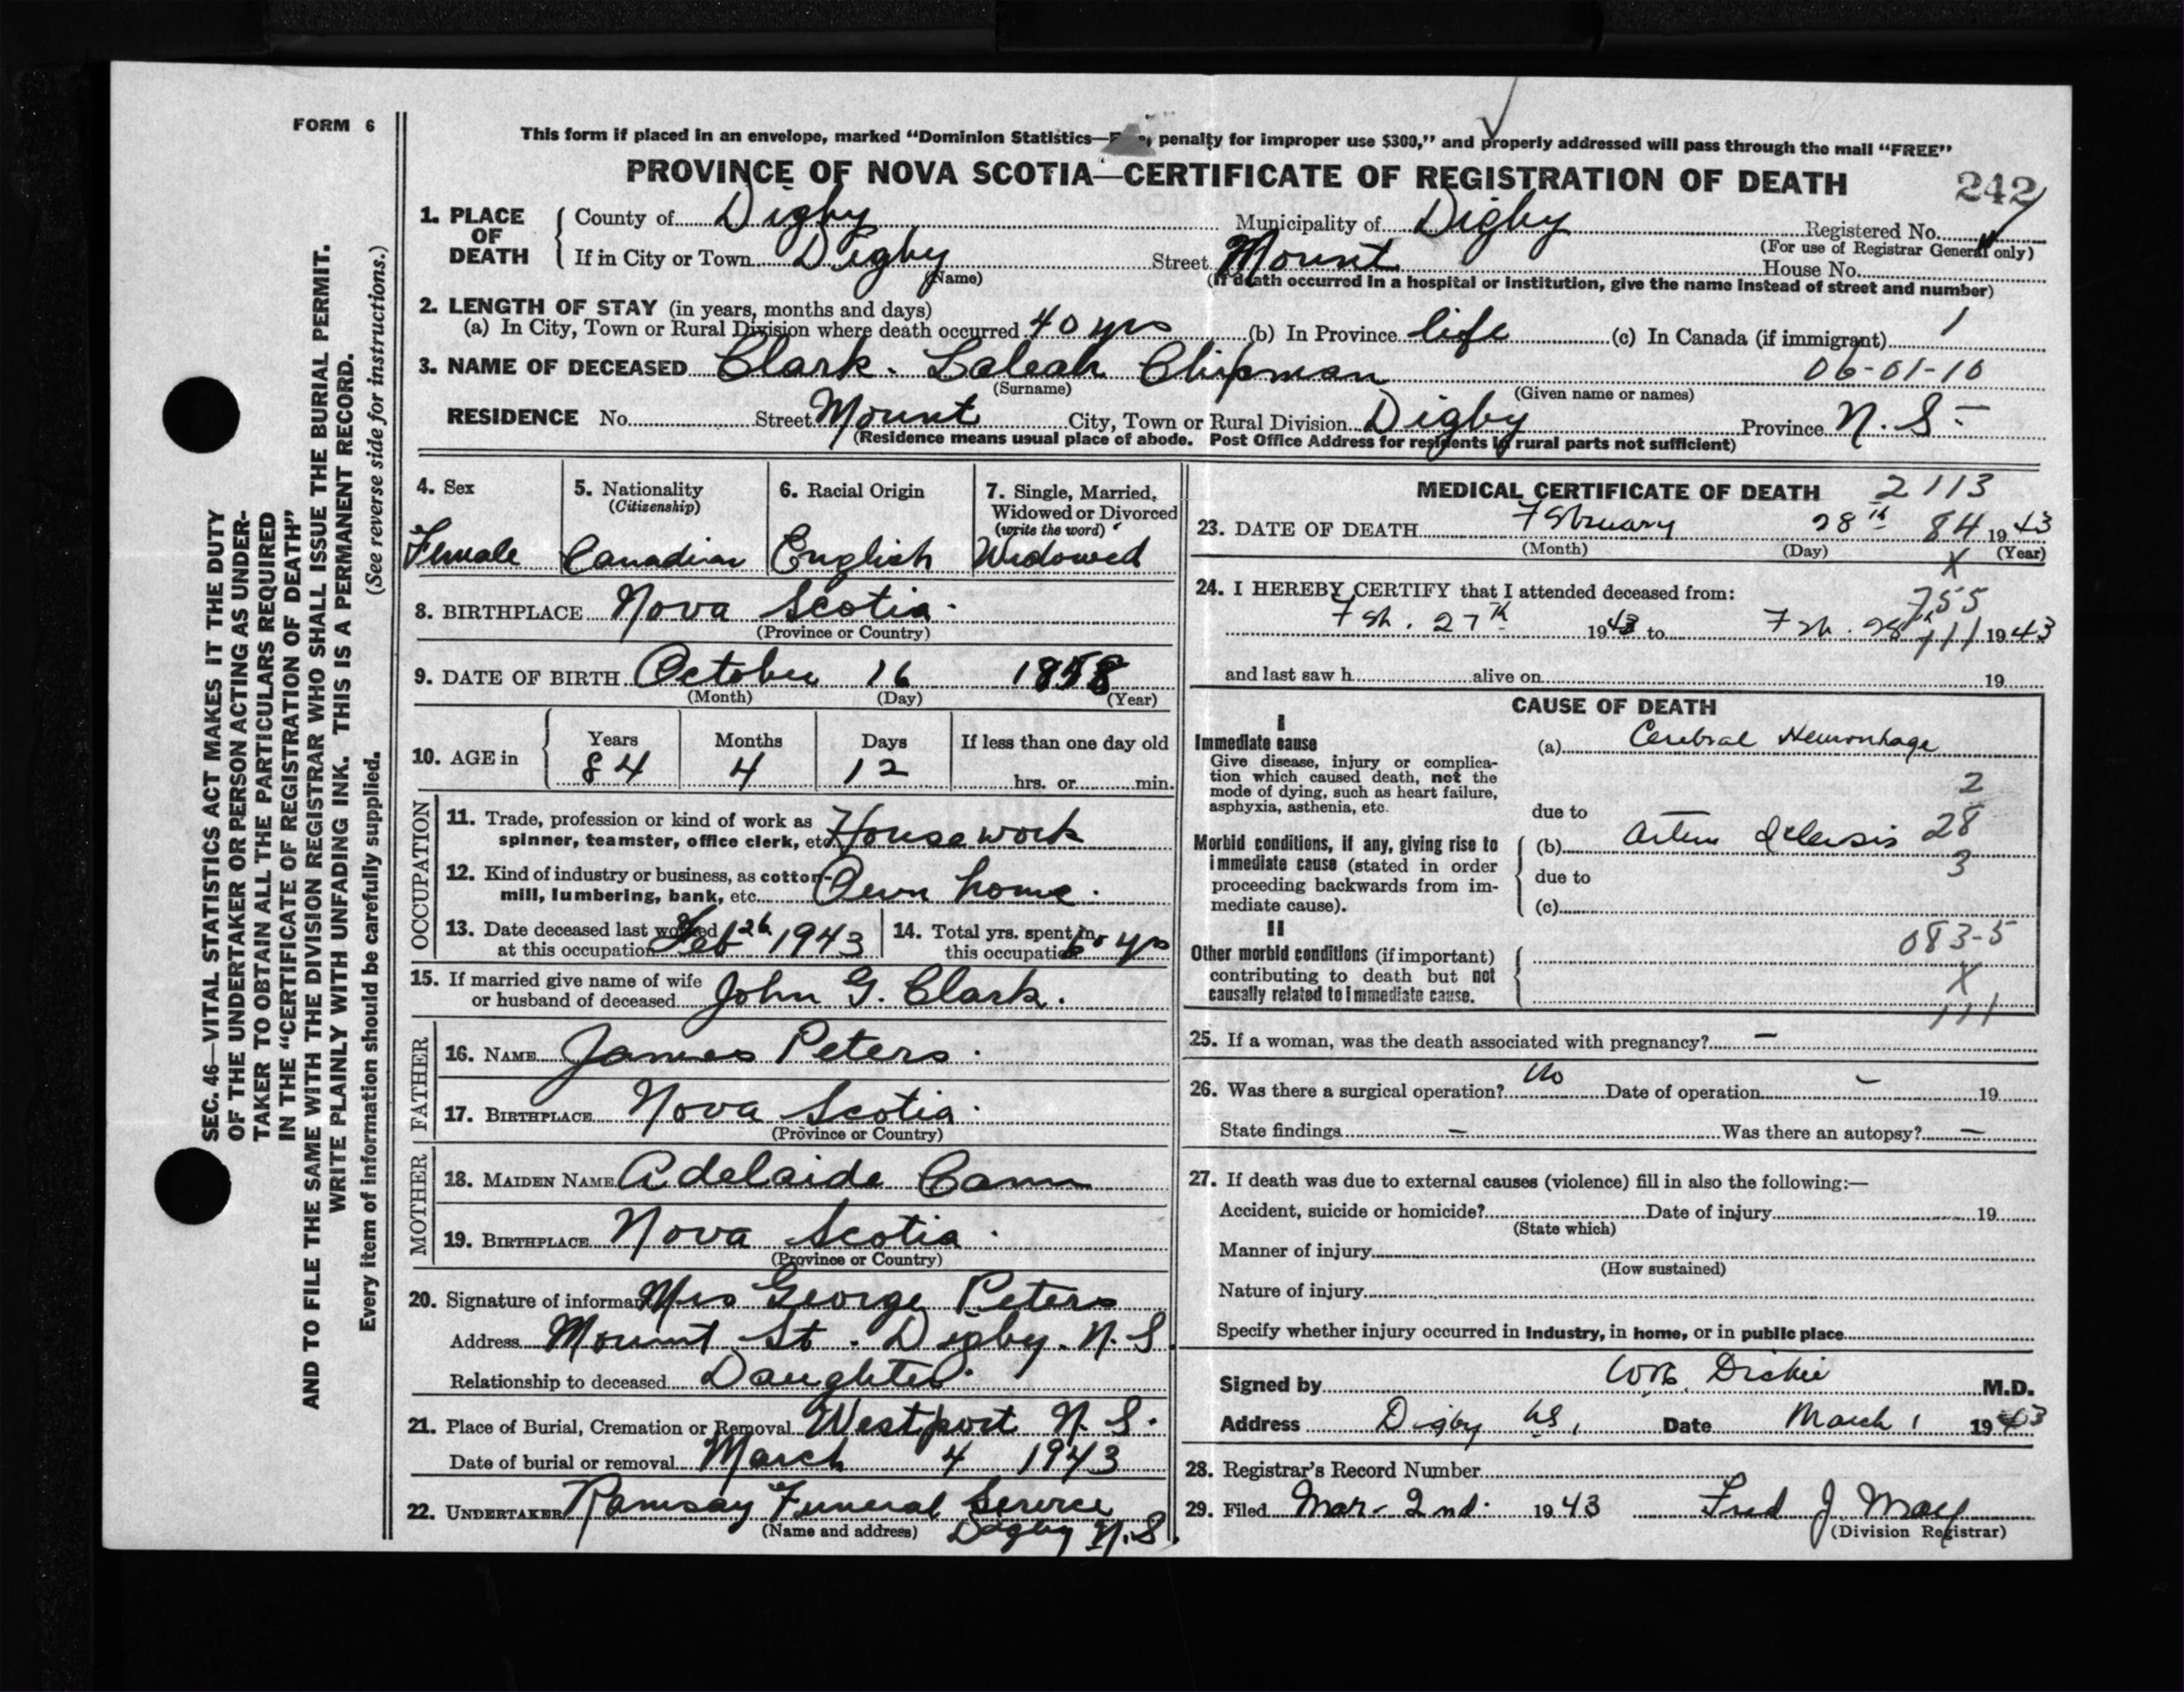 FORM 6
This form if placed in an envelope, marked "Dominion Statistics— penalty for improper use $300," and properly addressed will pass through the mail "FREE"
PROVINCE OF NOVA SCOTIA—CERTIFICATE OF REGISTRATION OF DEATH
242
1. PLACE OF DEATH
County of Digby Municipality of Digby Registered No.
(For use of Registrar General only)
If in City or Town Digby Street Mount House No.
(Name) (If death occurred in a hospital or institution, give the name instead of street and number)
2. LENGTH OF STAY (in years, months and days)
(a) In City, Town or Rural Division where death occurred 40 yrs (b) In Province life (c) In Canada (if immigrant) 1
3. NAME OF DECEASED Clark. Laleah Chipman 06-01-10
(Surname) (Given name or names)
RESIDENCE No. Street Mount City, Town or Rural Division Digby Province N.S-
(Residence means usual place of abode. Post Office Address for residents in rural parts not sufficient)
4. Sex
Female
5. Nationality
(Citizenship)
Canadian
6. Racial Origin
English
7. Single, Married, Widowed or Divorced
(write the word)
Widowed
8. BIRTHPLACE Nova Scotia.
(Province or Country)
9. DATE OF BIRTH October 16 1858
(Month) (Day) (Year)
10. AGE in
Years Months Days If less than one day old
84 4 12 hrs. or min.
OCCUPATION
11. Trade, profession or kind of work as
spinner, teamster, office clerk, etc. Housework
12. Kind of industry or business, as cotton-
mill, lumbering, bank, etc. Own home.
13. Date deceased last worked
at this occupation Feb 26 1943
14. Total yrs. spent in
this occupation 60 yrs
15. If married give name of wife
or husband of deceased John G. Clark.
FATHER
16. NAME James Peters.
17. BIRTHPLACE Nova Scotia.
(Province or Country)
MOTHER
18. MAIDEN NAME Adelaide Cann
19. BIRTHPLACE Nova Scotia.
(Province or Country)
20. Signature of informant Mrs George Peters
Address Mount St. Digby. N.S.
Relationship to deceased Daughter.
21. Place of Burial, Cremation or Removal Westport N.S.
Date of burial or removal March 4 1943
22. UNDERTAKER Ramsay Funeral Service
(Name and address) Digby N.S.
MEDICAL CERTIFICATE OF DEATH 2113
23. DATE OF DEATH February 28th 84 1943
(Month) (Day) (Year)
X
24. I HEREBY CERTIFY that I attended deceased from:
755
Feb. 27th 1943 to Feb. 28th 1943
111
and last saw h alive on 19
CAUSE OF DEATH
I
Immediate cause
Give disease, injury or complica-
tion which caused death, not the
mode of dying, such as heart failure,
asphyxia, asthenia, etc.
(a) Cerebral Hemorrhage
2
due to
Morbid conditions, if any, giving rise to
immediate cause (stated in order
proceeding backwards from im-
mediate cause).
(b) Arterio Sclerosis 28
3
due to
(c)
II
Other morbid conditions (if important)
contributing to death but not
causally related to immediate cause.
083-5
X
111
25. If a woman, was the death associated with pregnancy? —
26. Was there a surgical operation? No Date of operation — 19
State findings — Was there an autopsy? —
27. If death was due to external causes (violence) fill in also the following:—
Accident, suicide or homicide? Date of injury 19
(State which)
Manner of injury
(How sustained)
Nature of injury
Specify whether injury occurred in Industry, in home, or in public place
Signed by Dickie M.D.
Address Digby NS, Date March 1 1943
28. Registrar's Record Number
29. Filed Mar- 2nd. 1943 Fred J. May
(Division Registrar)
SEC. 46—VITAL STATISTICS ACT MAKES IT THE DUTY
OF THE UNDERTAKER OR PERSON ACTING AS UNDER-
TAKER TO OBTAIN ALL THE PARTICULARS REQUIRED
IN THE "CERTIFICATE OF REGISTRATION OF DEATH"
AND TO FILE THE SAME WITH THE DIVISION REGISTRAR WHO SHALL ISSUE THE BURIAL PERMIT.
WRITE PLAINLY WITH UNFADING INK. THIS IS A PERMANENT RECORD.
Every item of information should be carefully supplied. (See reverse side for instructions.)